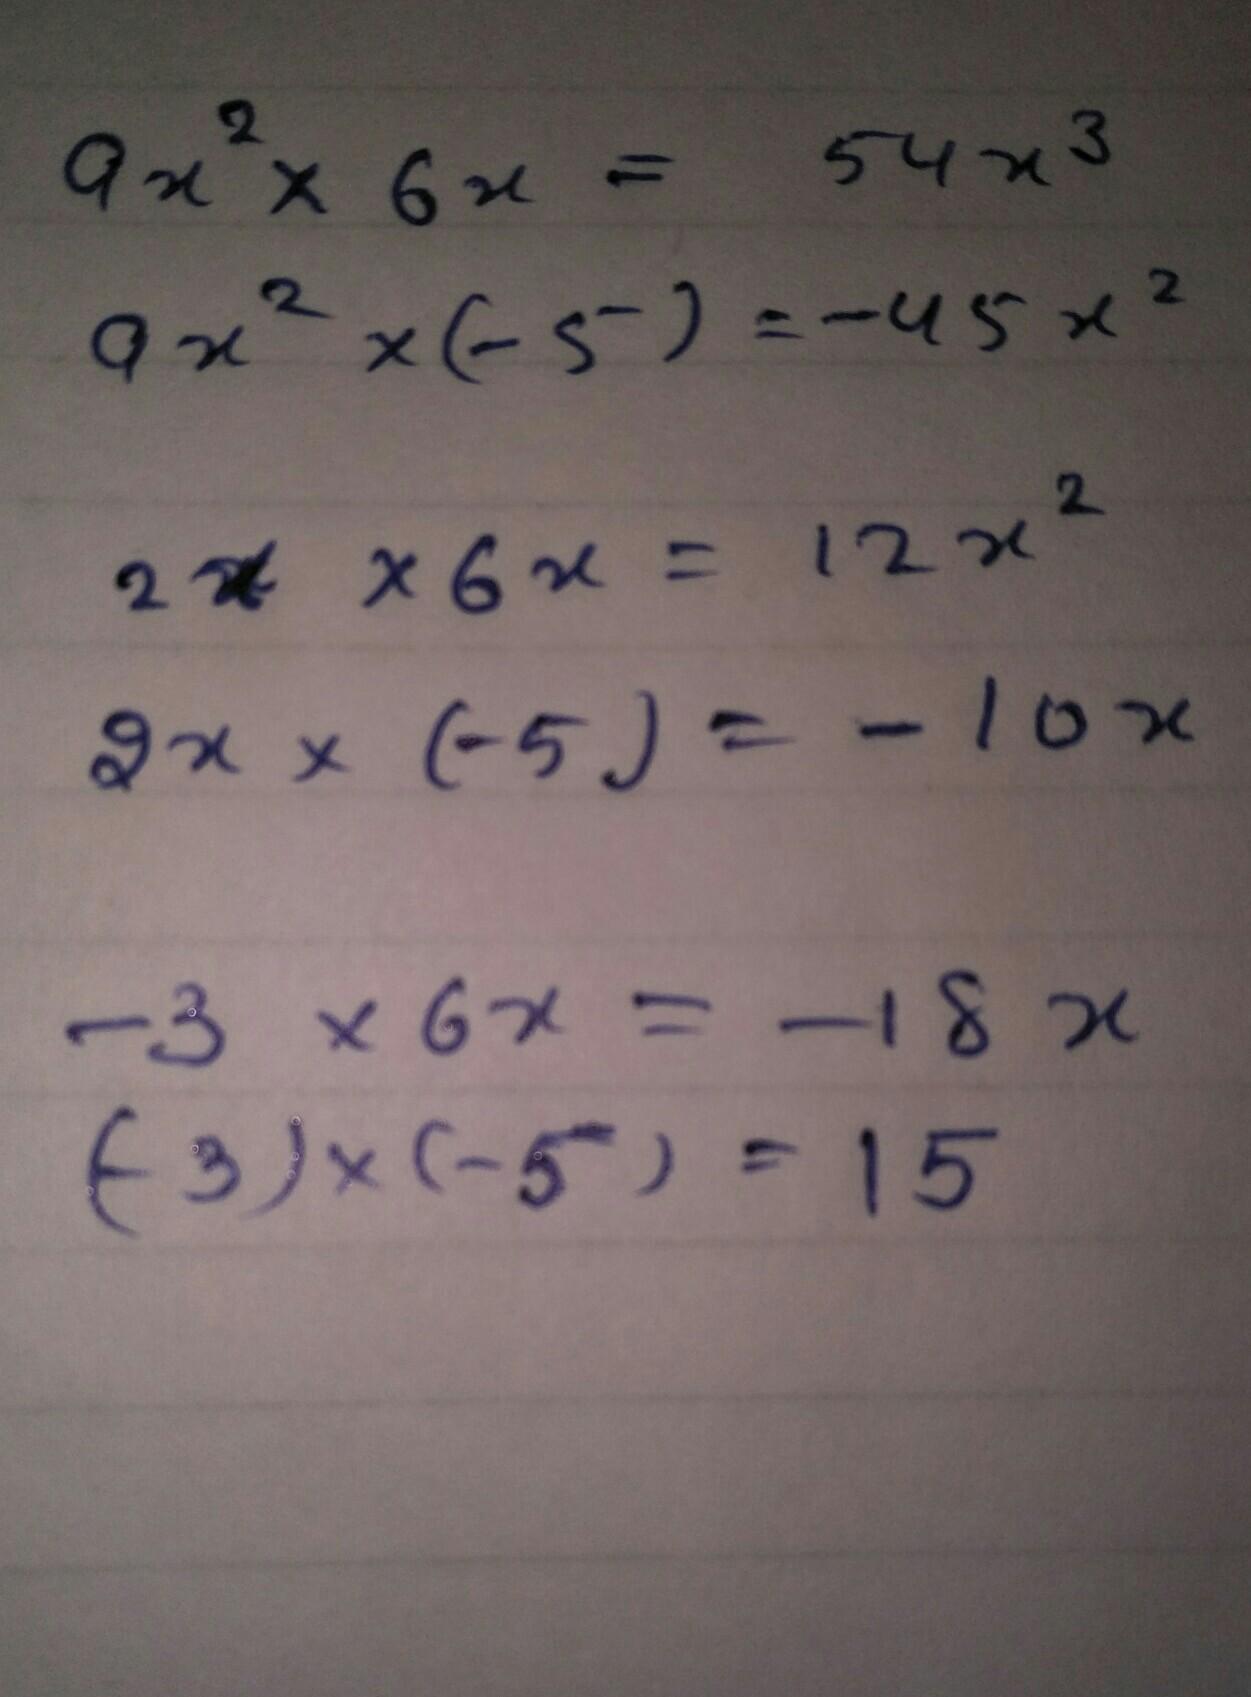 9x² × 6x = 54x³
9x² × (-5) = -45x²
2x × 6x = 12x²
2x × (-5) = -10x
-3 × 6x = -18x
(-3) × (-5) = 15